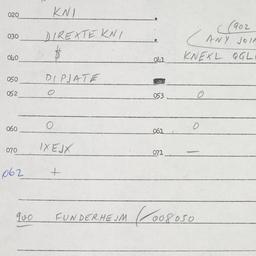 020 KNI
030 DIREXTE KNI (902
ANY JOIN
040 $ 041 KNEXL QGL
050 DIPJATE
052 0 053 0
060 0 061 0
070 IXEJX 071 —
062 +
900 FUNDERHEJM (008050